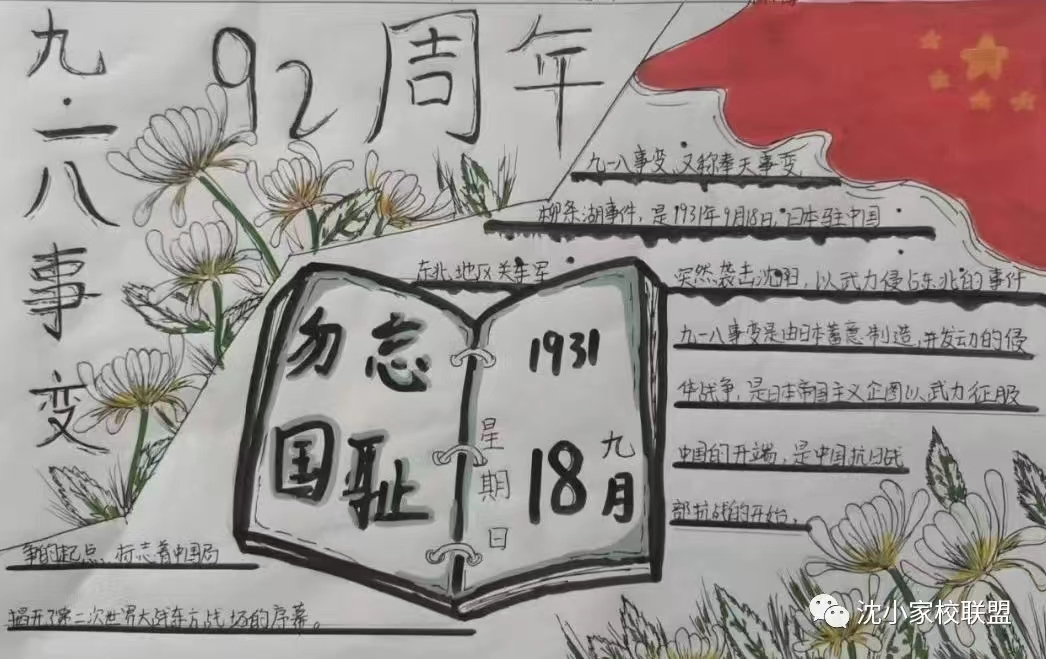 九·一八事变
92周年
九一八事变,又称奉天事变
柳条湖事件,是1931年9月18日,日本驻中国
东北地区关东军
突然袭击沈阳,以武力侵占东北的事件
九一八事变是由日本蓄意制造,并发动的侵
华战争,是日本帝国主义企图以武力征服
中国的开端,是中国抗日战
部抗战的开始。
事的起点,标志着中国局
揭开了第二次世界大战东方战场的序幕。
勿忘
国耻
1931
九月
18
星期日
沈小家校联盟